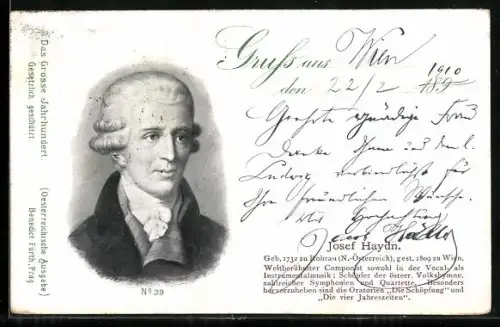 Das Grosse Jahrhundert
Gesetzlich geschützt.
(Oesterreichische Ausgabe)
Benedict Fürth, Prag
Gruss aus Wien
1910
den 22/2 189
Geehrte gnädige Frau
Danke Ihnen aus dem l.
Ludwig verbindlichst für
Ihre freundlichen Wünsche.
Josef Haydn.
Geb. 1732 zu Rohrau (N.-Österreich), gest. 1809 zu Wien,
Weltberühmter Componist sowohl in der Vocal- als
Instrumentalmusik; Schöpfer der österr. Volkshymne,
zahlreicher Symphonien und Quartette. Besonders
hervorzuheben sind die Oratorien „Die Schöpfung" und
„Die vier Jahreszeiten".
No 39